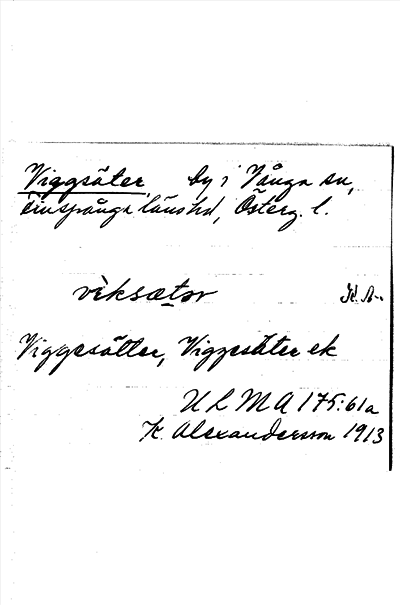 Viggsäter, by i Vånga sn,
Finspånga länshd, Österg. l.
vìksætər K. A.
Viggesätter, Viggesäter ek
ULMA 175:61a
K. Alexandersson 1913